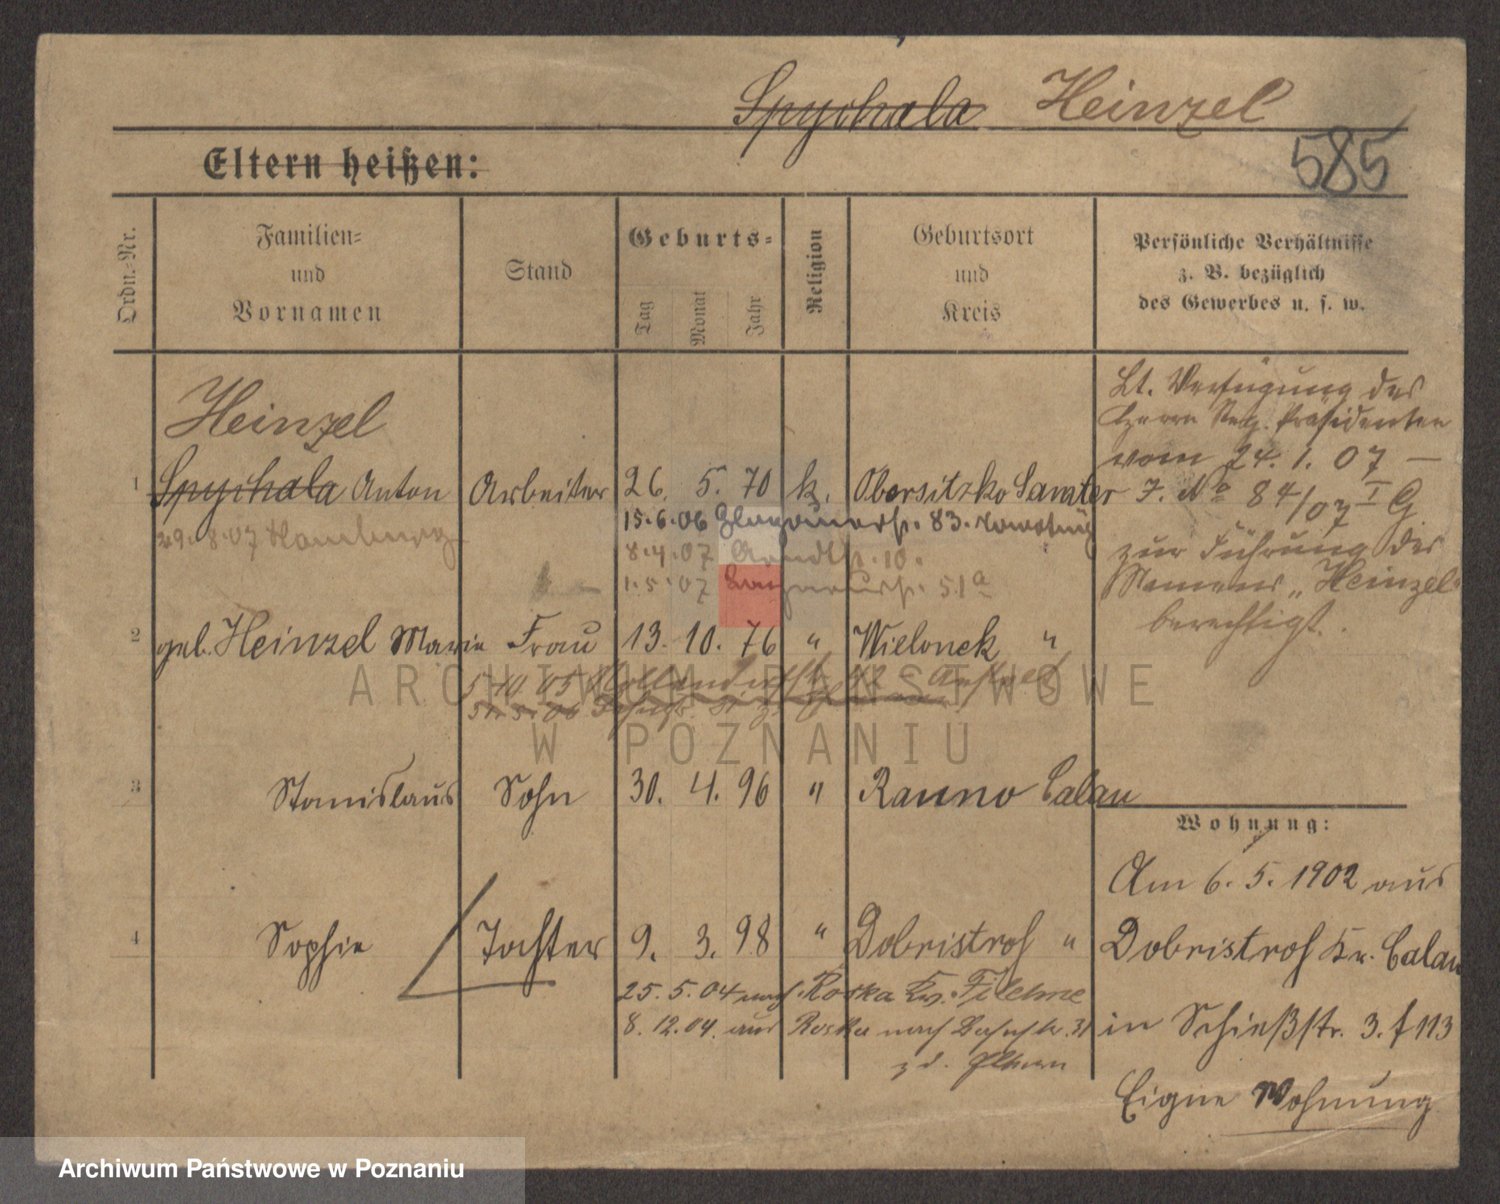 Spychala Heinzel
585
Eltern heißen:
Ordn.-Nr.
Familien-
und
Vornamen
Stand
Geburts-
Tag
Monat
Jahr
Religion
Geburtsort
und
Kreis
Persönliche Verhältnisse
z. B. bezüglich
des Gewerbes u. s. w.
Heinzel
1 Spychala Anton Arbeiter 26. 5. 70 k. Obersitzko Samter
29.8.07 Hamburg
15.6.06 83.
8.4.07 Arndtstr. 10.
1.5.07 51a
2 geb. Heinzel Marie Frau 13. 10. 76 " Wielonek "
5.10.05
3 Stanislaus Sohn 30. 4. 96 " Ranno Calau
4 Sophie Tochter 9. 3. 98 " Dobristroh "
25.5.04 nach Roska Kr. Filehne
8.12.04 aus Roska nach Bahnstr. 31
z. d. Eltern
Lt. Verfügung des
Herrn Reg. Präsidenten
vom 24. 1. 07 –
J. No 84/07 I G
zur Führung des
Namens „Heinzel"
berechtigt.
Wohnung:
Am 6. 5. 1902 aus
Dobristroh Kr. Calau
in Schießstr. 3. f 113
Eigne Wohnung
ARCHIWUM PAŃSTWOWE
W POZNANIU
Archiwum Państwowe w Poznaniu